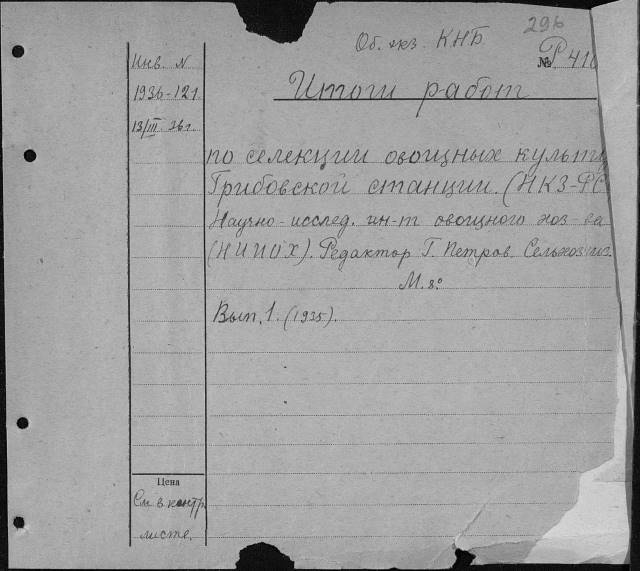 296
Об. экз. КНБ
№ Р 410
Инв. N
1936-121
13/III. 36 г.
Итоги работ
по селекции овощных культу
Грибовской станции. (НКЗ-РС
Научно-исслед. ин-т овощного хоз-ва
(НИИОХ). Редактор Г. Петров. Сельхозгиз.
М. 8°
Вып. 1. (1935).
Цена
См в контр
листе.